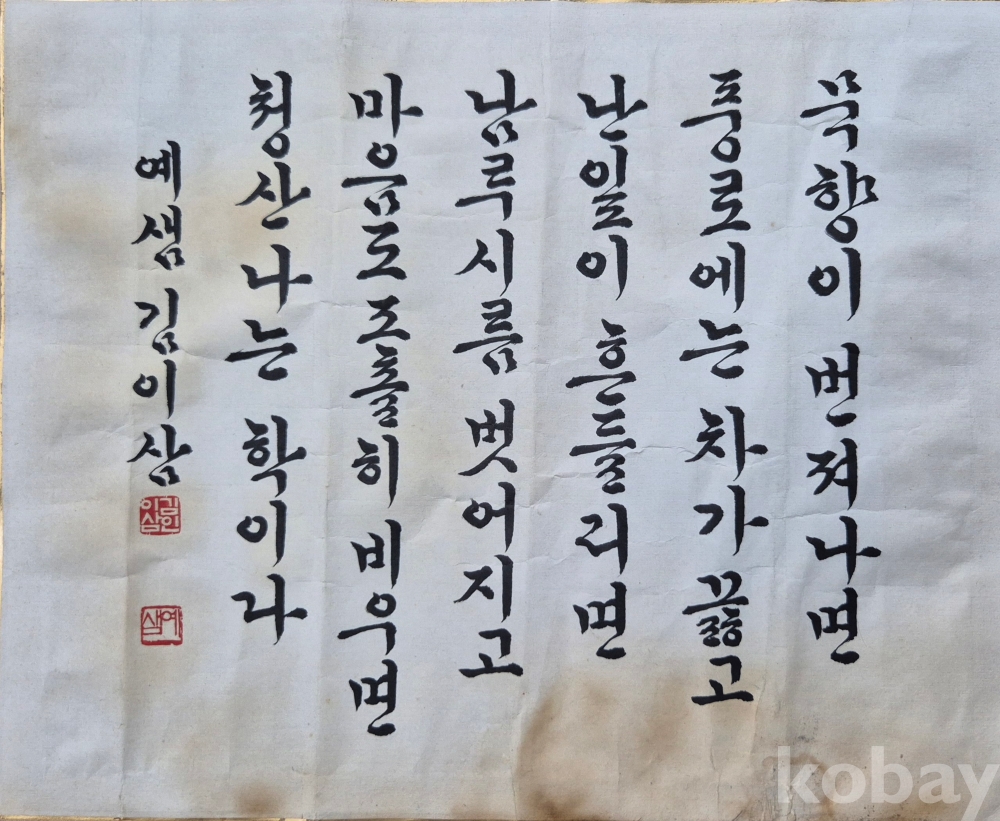 묵향이 번져나면
풍로에는 차가 끓고
난잎이 흔들리면
남루시름 벗어지고
마음도 조촐히 비우면
청산 나는 학이라
예샘 김이삼
김인이삼
예샘
kobay